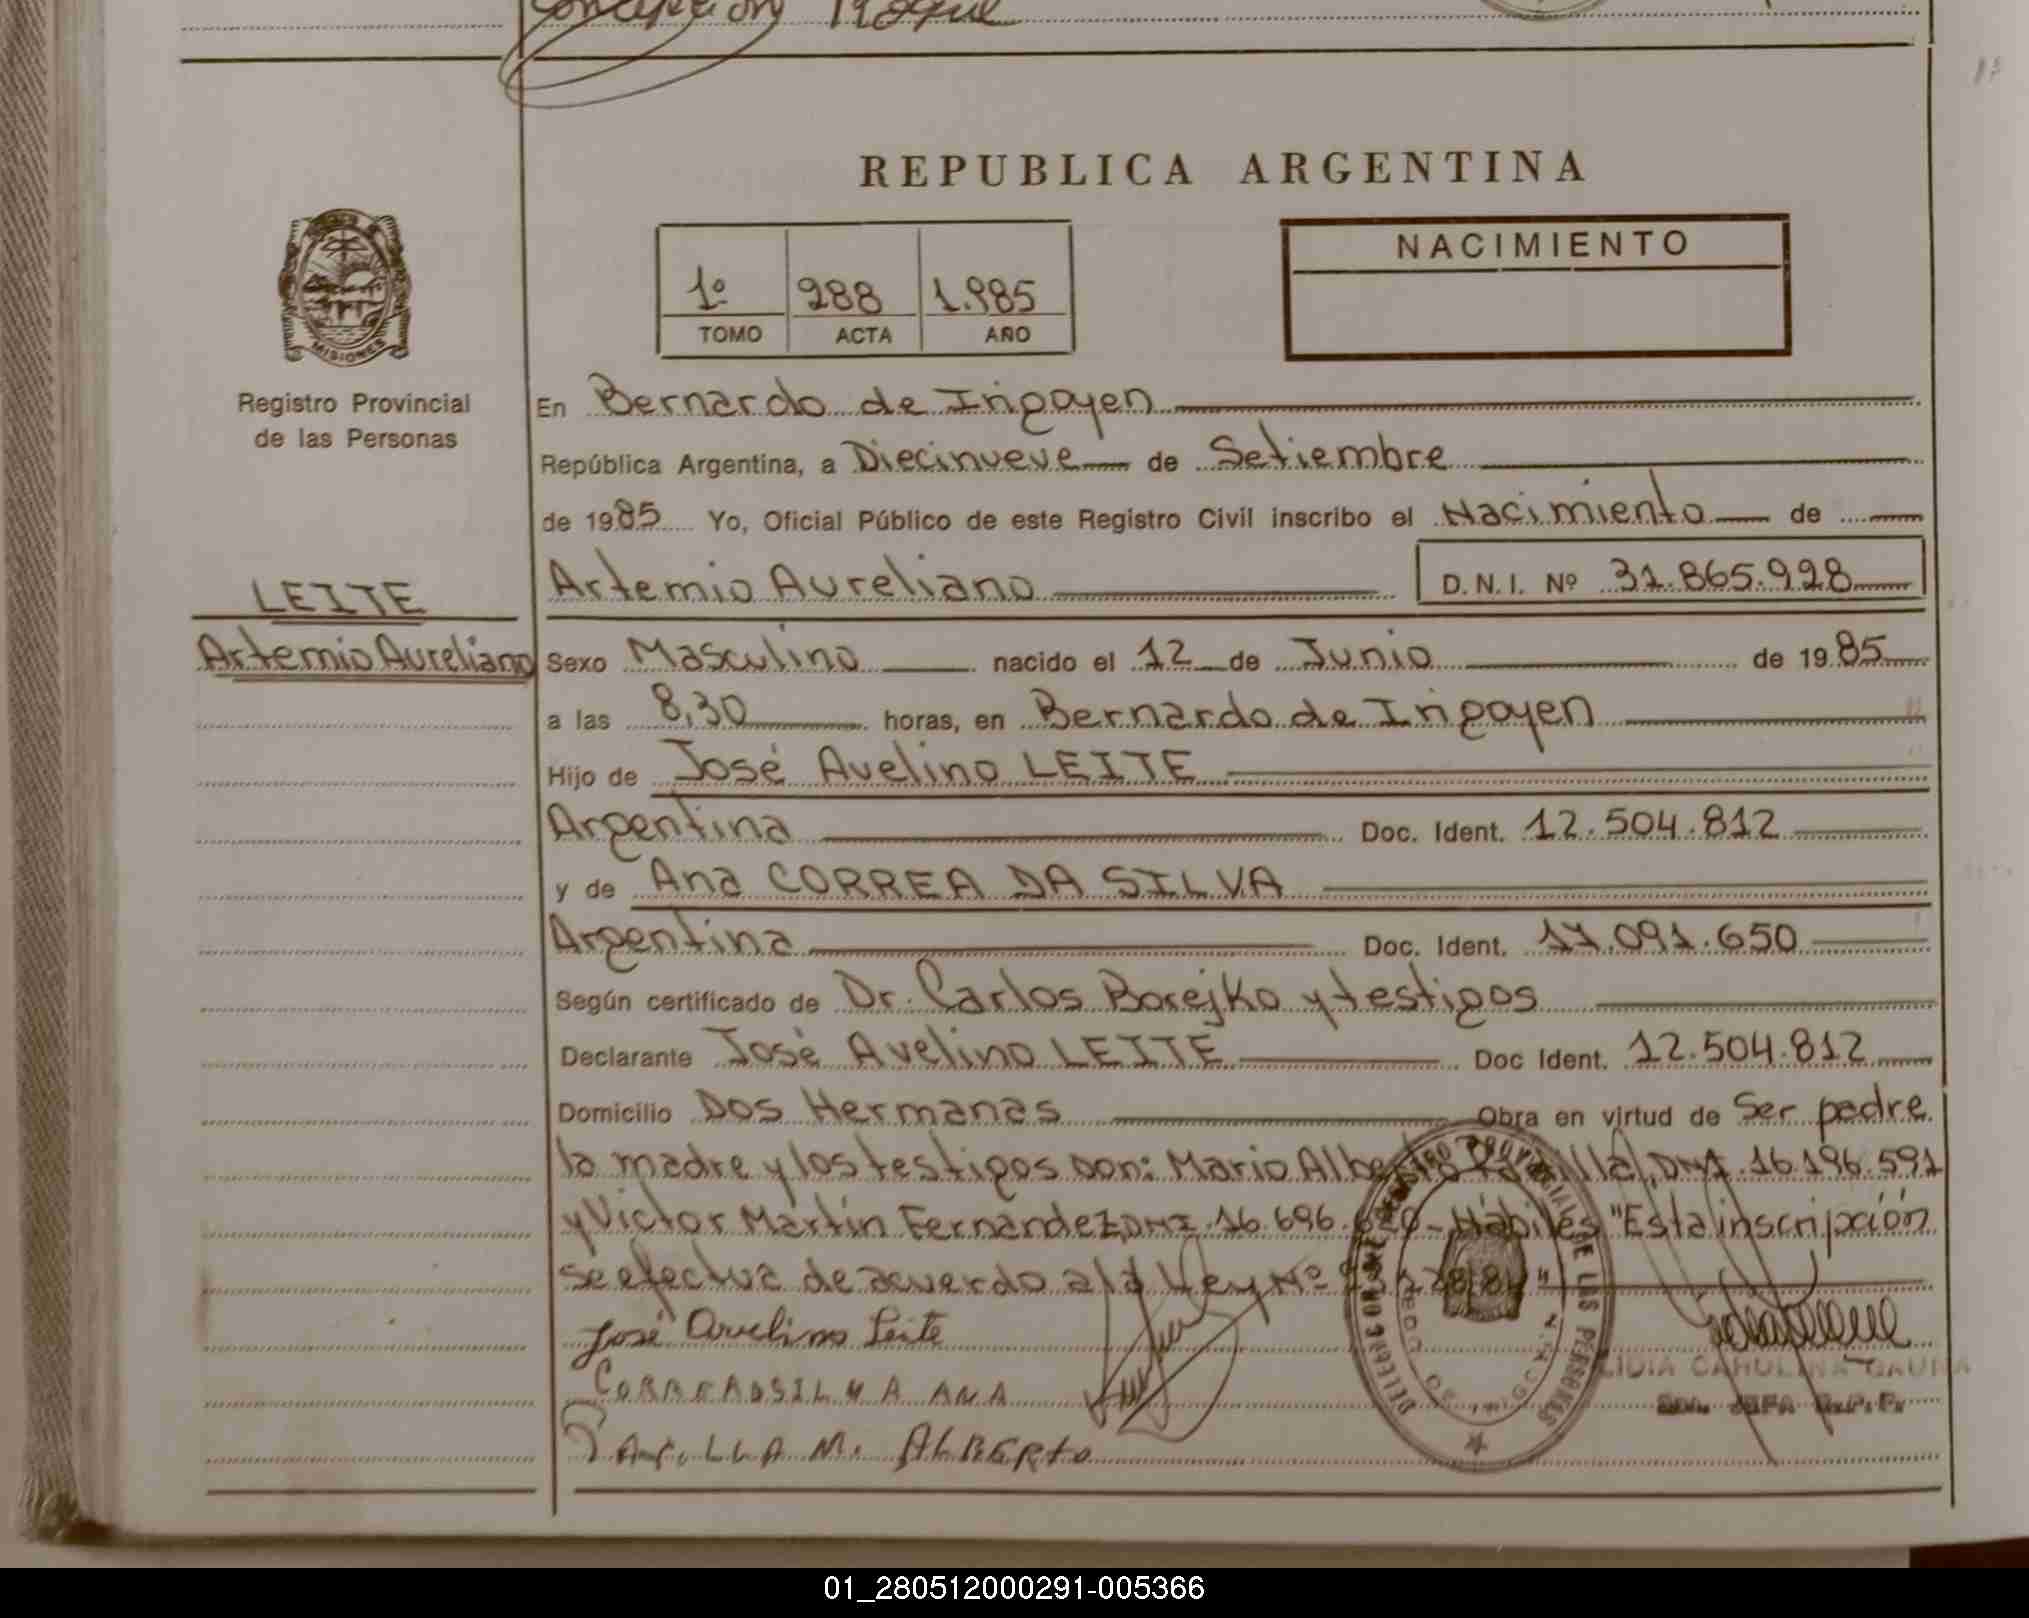 Concepción Roque
REPUBLICA ARGENTINA
1º 288 1.985
TOMO ACTA AÑO
NACIMIENTO
MISIONES
Registro Provincial
de las Personas
LEITE
Artemio Aureliano
En Bernardo de Irigoyen
República Argentina, a Diecinueve de Setiembre
de 1985 Yo, Oficial Público de este Registro Civil inscribo el Nacimiento de
Artemio Aureliano D.N.I. Nº 31.865.928
Sexo Masculino nacido el 12 de Junio de 1985
a las 8,30 horas, en Bernardo de Irigoyen
Hijo de José Avelino LEITE
Argentina Doc. Ident. 12.504.812
y de Ana CORREA DA SILVA
Argentina Doc. Ident. 17.091.650
Según certificado de Dr. Carlos Borejko y testigos
Declarante José Avelino LEITE Doc Ident. 12.504.812
Domicilio Dos Hermanas Obra en virtud de Ser padre
la madre y los testigos son: Mario Alberto DNI.16.196.591
y Victor Martín Fernandez, DNI.16.696. Hábiles "Esta inscripción
se efectua de acuerdo a la Ley Nº
José Avelino Leite
CORREADSILVA ANA
M. ALBERTO
LIDIA CAROLINA GAUNA
JEFA R.P.P.
01_280512000291-005366